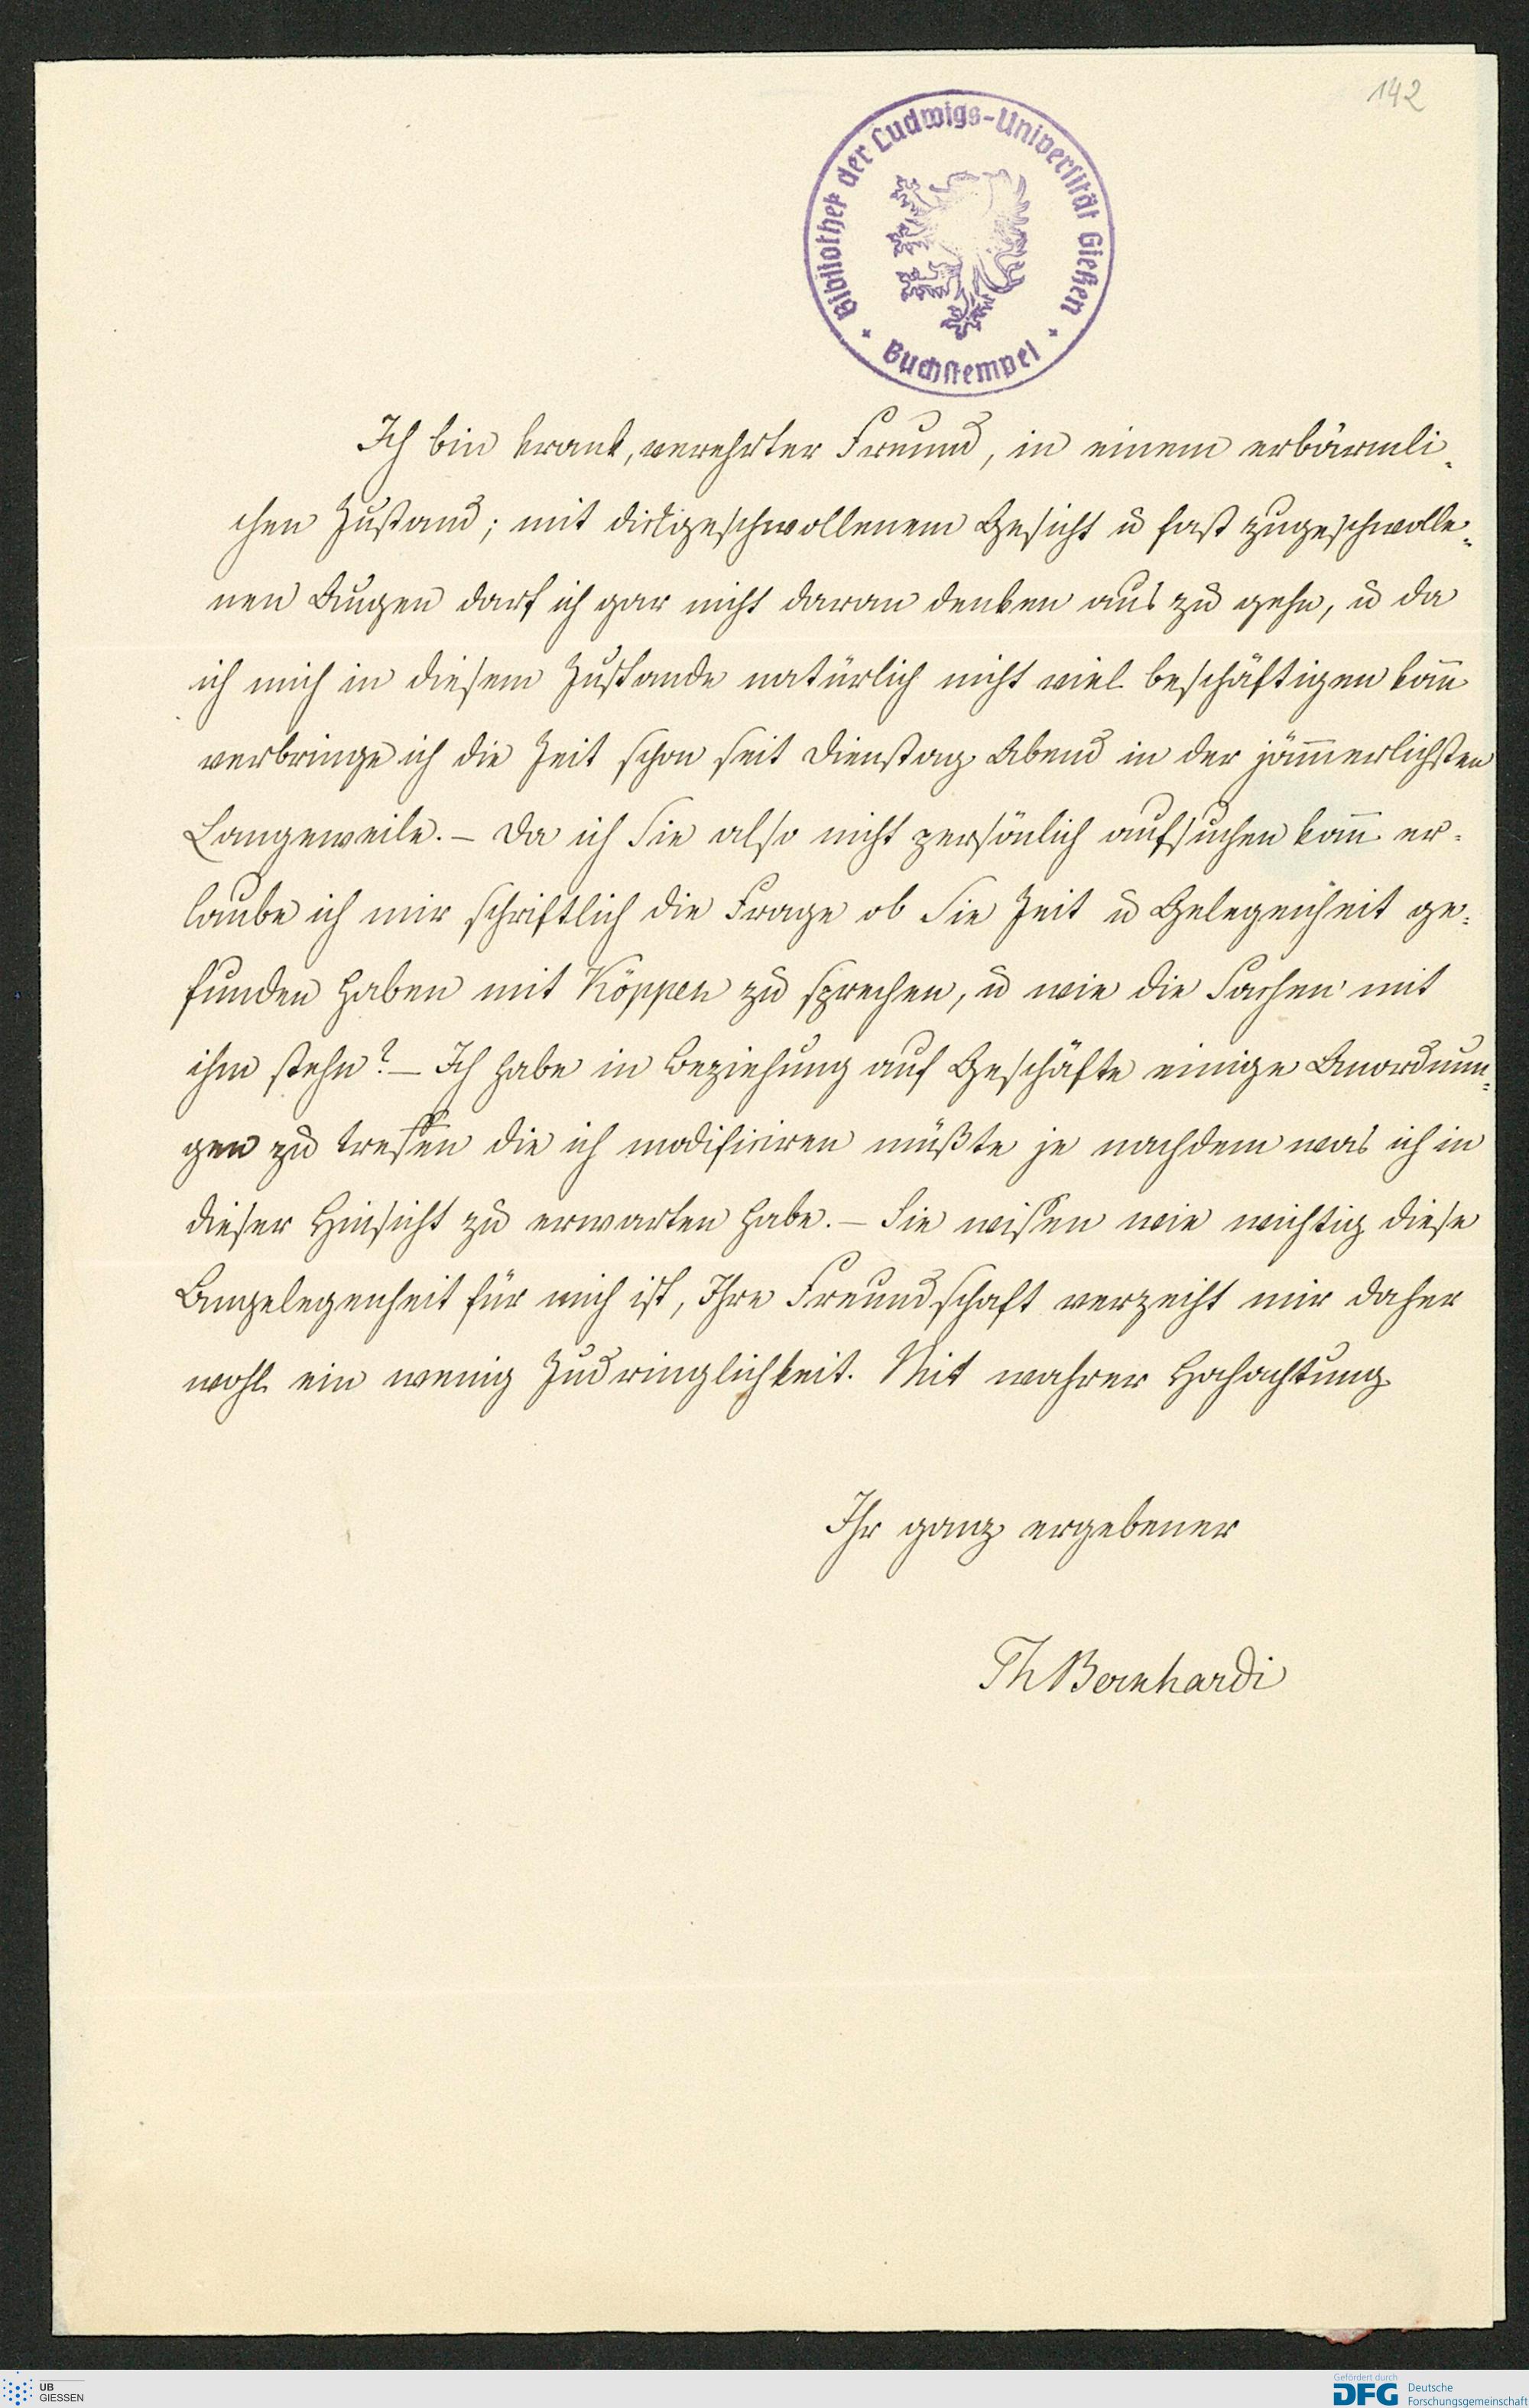 142
Bibliothek der Ludwigs-Universität Gießen
Buchstempel
Ich bin krank, verehrter Freund, in einem erbärmli-
chen Zustand; mit dickgeschwollenem Gesicht ū fast zugeschwolle-
nen Augen darf ich gar nicht daran denken aus zu gehn, ū da
ich mich in diesem Zustande natürlich nicht viel beschäftigen kan̄
verbringe ich die Zeit schon seit Dienstag Abend in der jäm̄erlichsten
Langeweile. – Da ich Sie also nicht persönlich aufsuchen kan̄ er-
laube ich mir schriftlich die Frage ob Sie Zeit ū Gelegenheit ge-
funden haben mit Köppen zu sprechen, ū wie die Sachen mit
ihm stehn? – Ich habe in Beziehung auf Geschäfte einige Anordnun-
gen zu treffen die ich modificiren müßte je nachdem was ich in
dieser Hinsicht zu erwarten habe. – Sie wissen wie wichtig diese
Angelegenheit für mich ist, Ihre Freundschaft verzeiht mir daher
wohl ein wenig Zudringlichkeit. Mit wahrer Hochachtung
Ihr ganz ergebener
Th Bernhardi
UB
GIESSEN
Gefördert durch
DFG Deutsche
Forschungsgemeinschaft